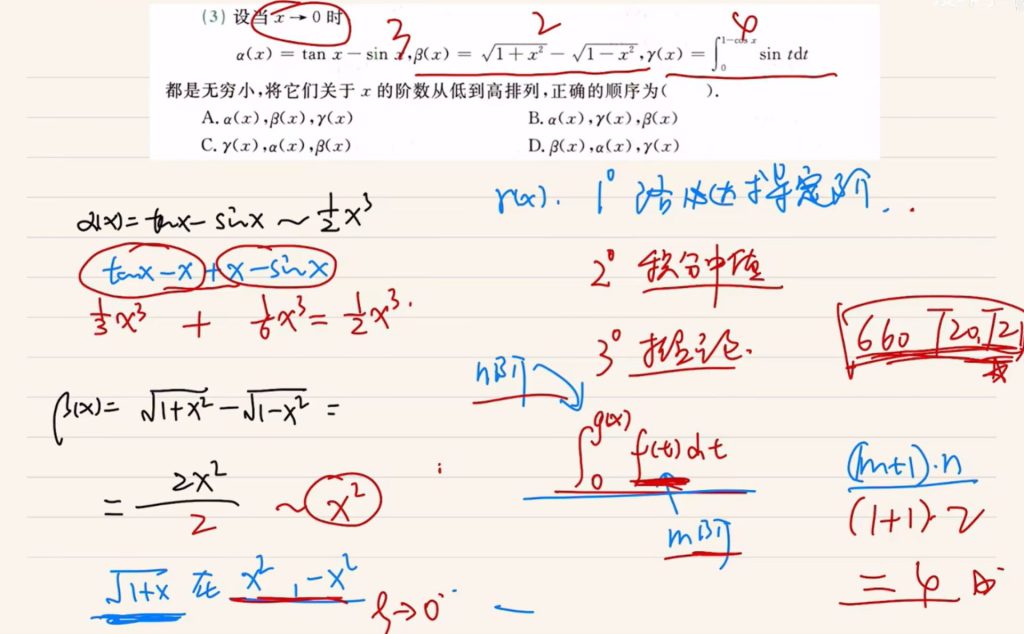 (3) 设当 x → 0 时
3 2 4
α(x) = tan x − sin x, β(x) = √(1+x²) − √(1−x²), γ(x) = ∫₀^(1−cos x) sin tdt
都是无穷小,将它们关于 x 的阶数从低到高排列,正确的顺序为( ).
A. α(x),β(x),γ(x) B. α(x),γ(x),β(x)
C. γ(x),α(x),β(x) D. β(x),α(x),γ(x)
α(x) = tanx − sinx ~ ½x³
tanx − x + x − sinx
⅓x³ + ⅙x³ = ½x³.
β(x) = √(1+x²) − √(1−x²) =
= 2x²/2 ~ x²
√(1+x) 在 x², −x²
ξ→0
γ(x). 1° 洛必达求导定阶.
2° 积分中值
3° 推论.
660 T20, T21
n阶
∫₀^g(x) f(t)dt
m阶
(m+1)·n
(1+1)·2
= 4 阶